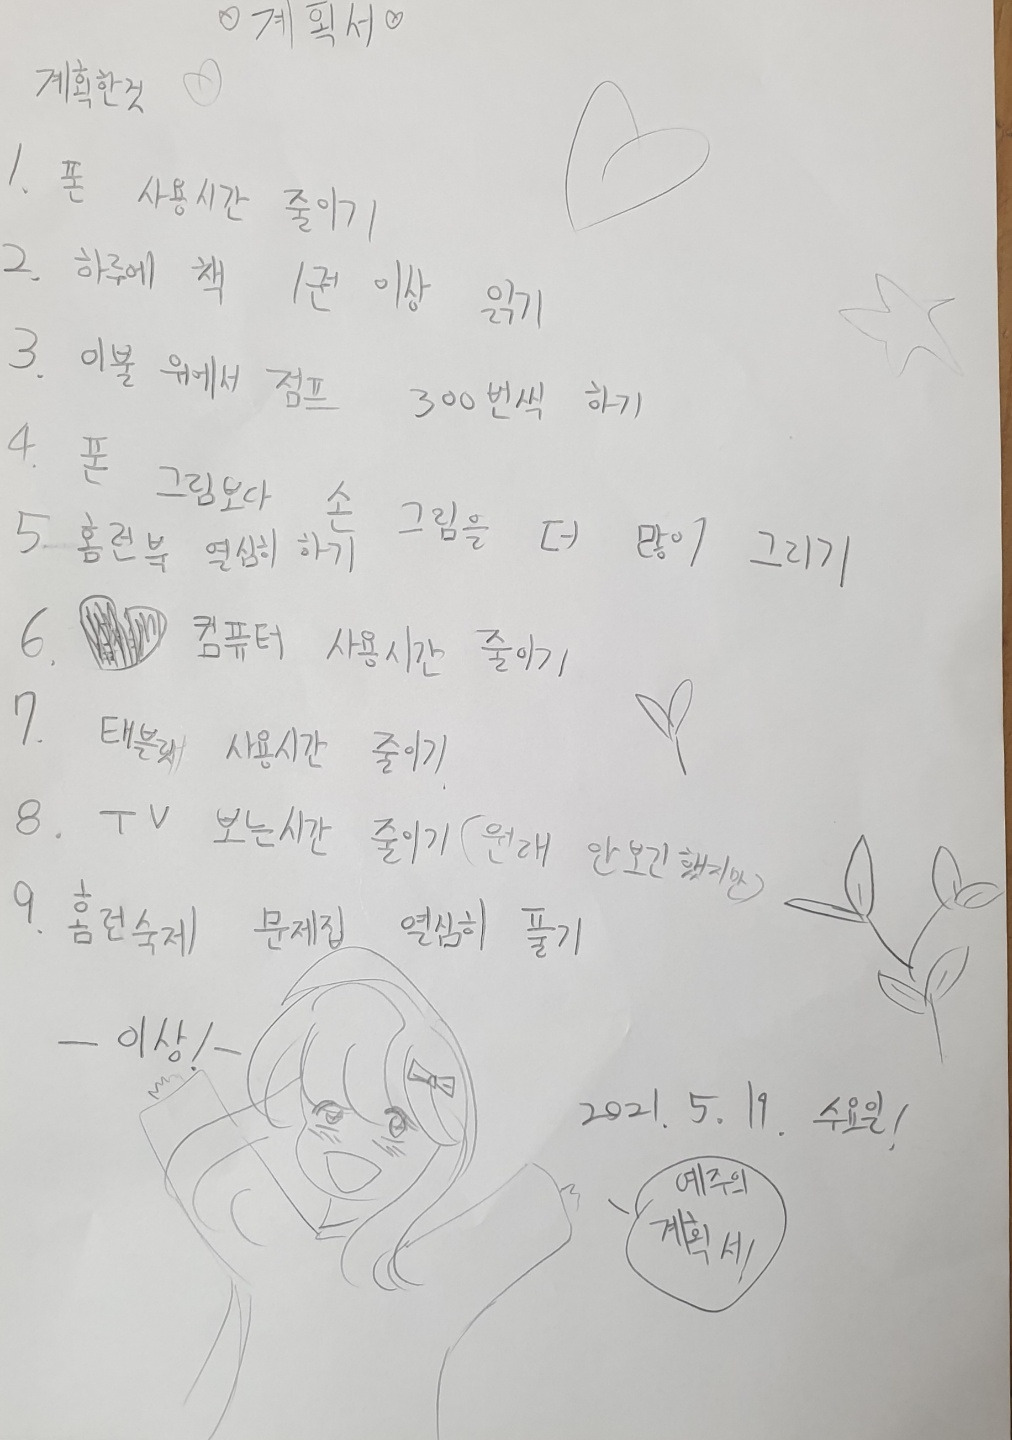 계획서
계획한것
1. 폰 사용시간 줄이기
2. 하루에 책 1권 이상 읽기
3. 이불 위에서 점프 300번씩 하기
4. 폰 그림보다 손 그림을 더 많이 그리기
5. 홈런북 열심히 하기
6. 컴퓨터 사용시간 줄이기
7. 태블릿 사용시간 줄이기
8. TV 보는시간 줄이기(원래 안보긴 했지만)
9. 홈런숙제 문제집 열심히 풀기
- 이상! -
2021. 5. 19. 수요일!
예주의
계획서!